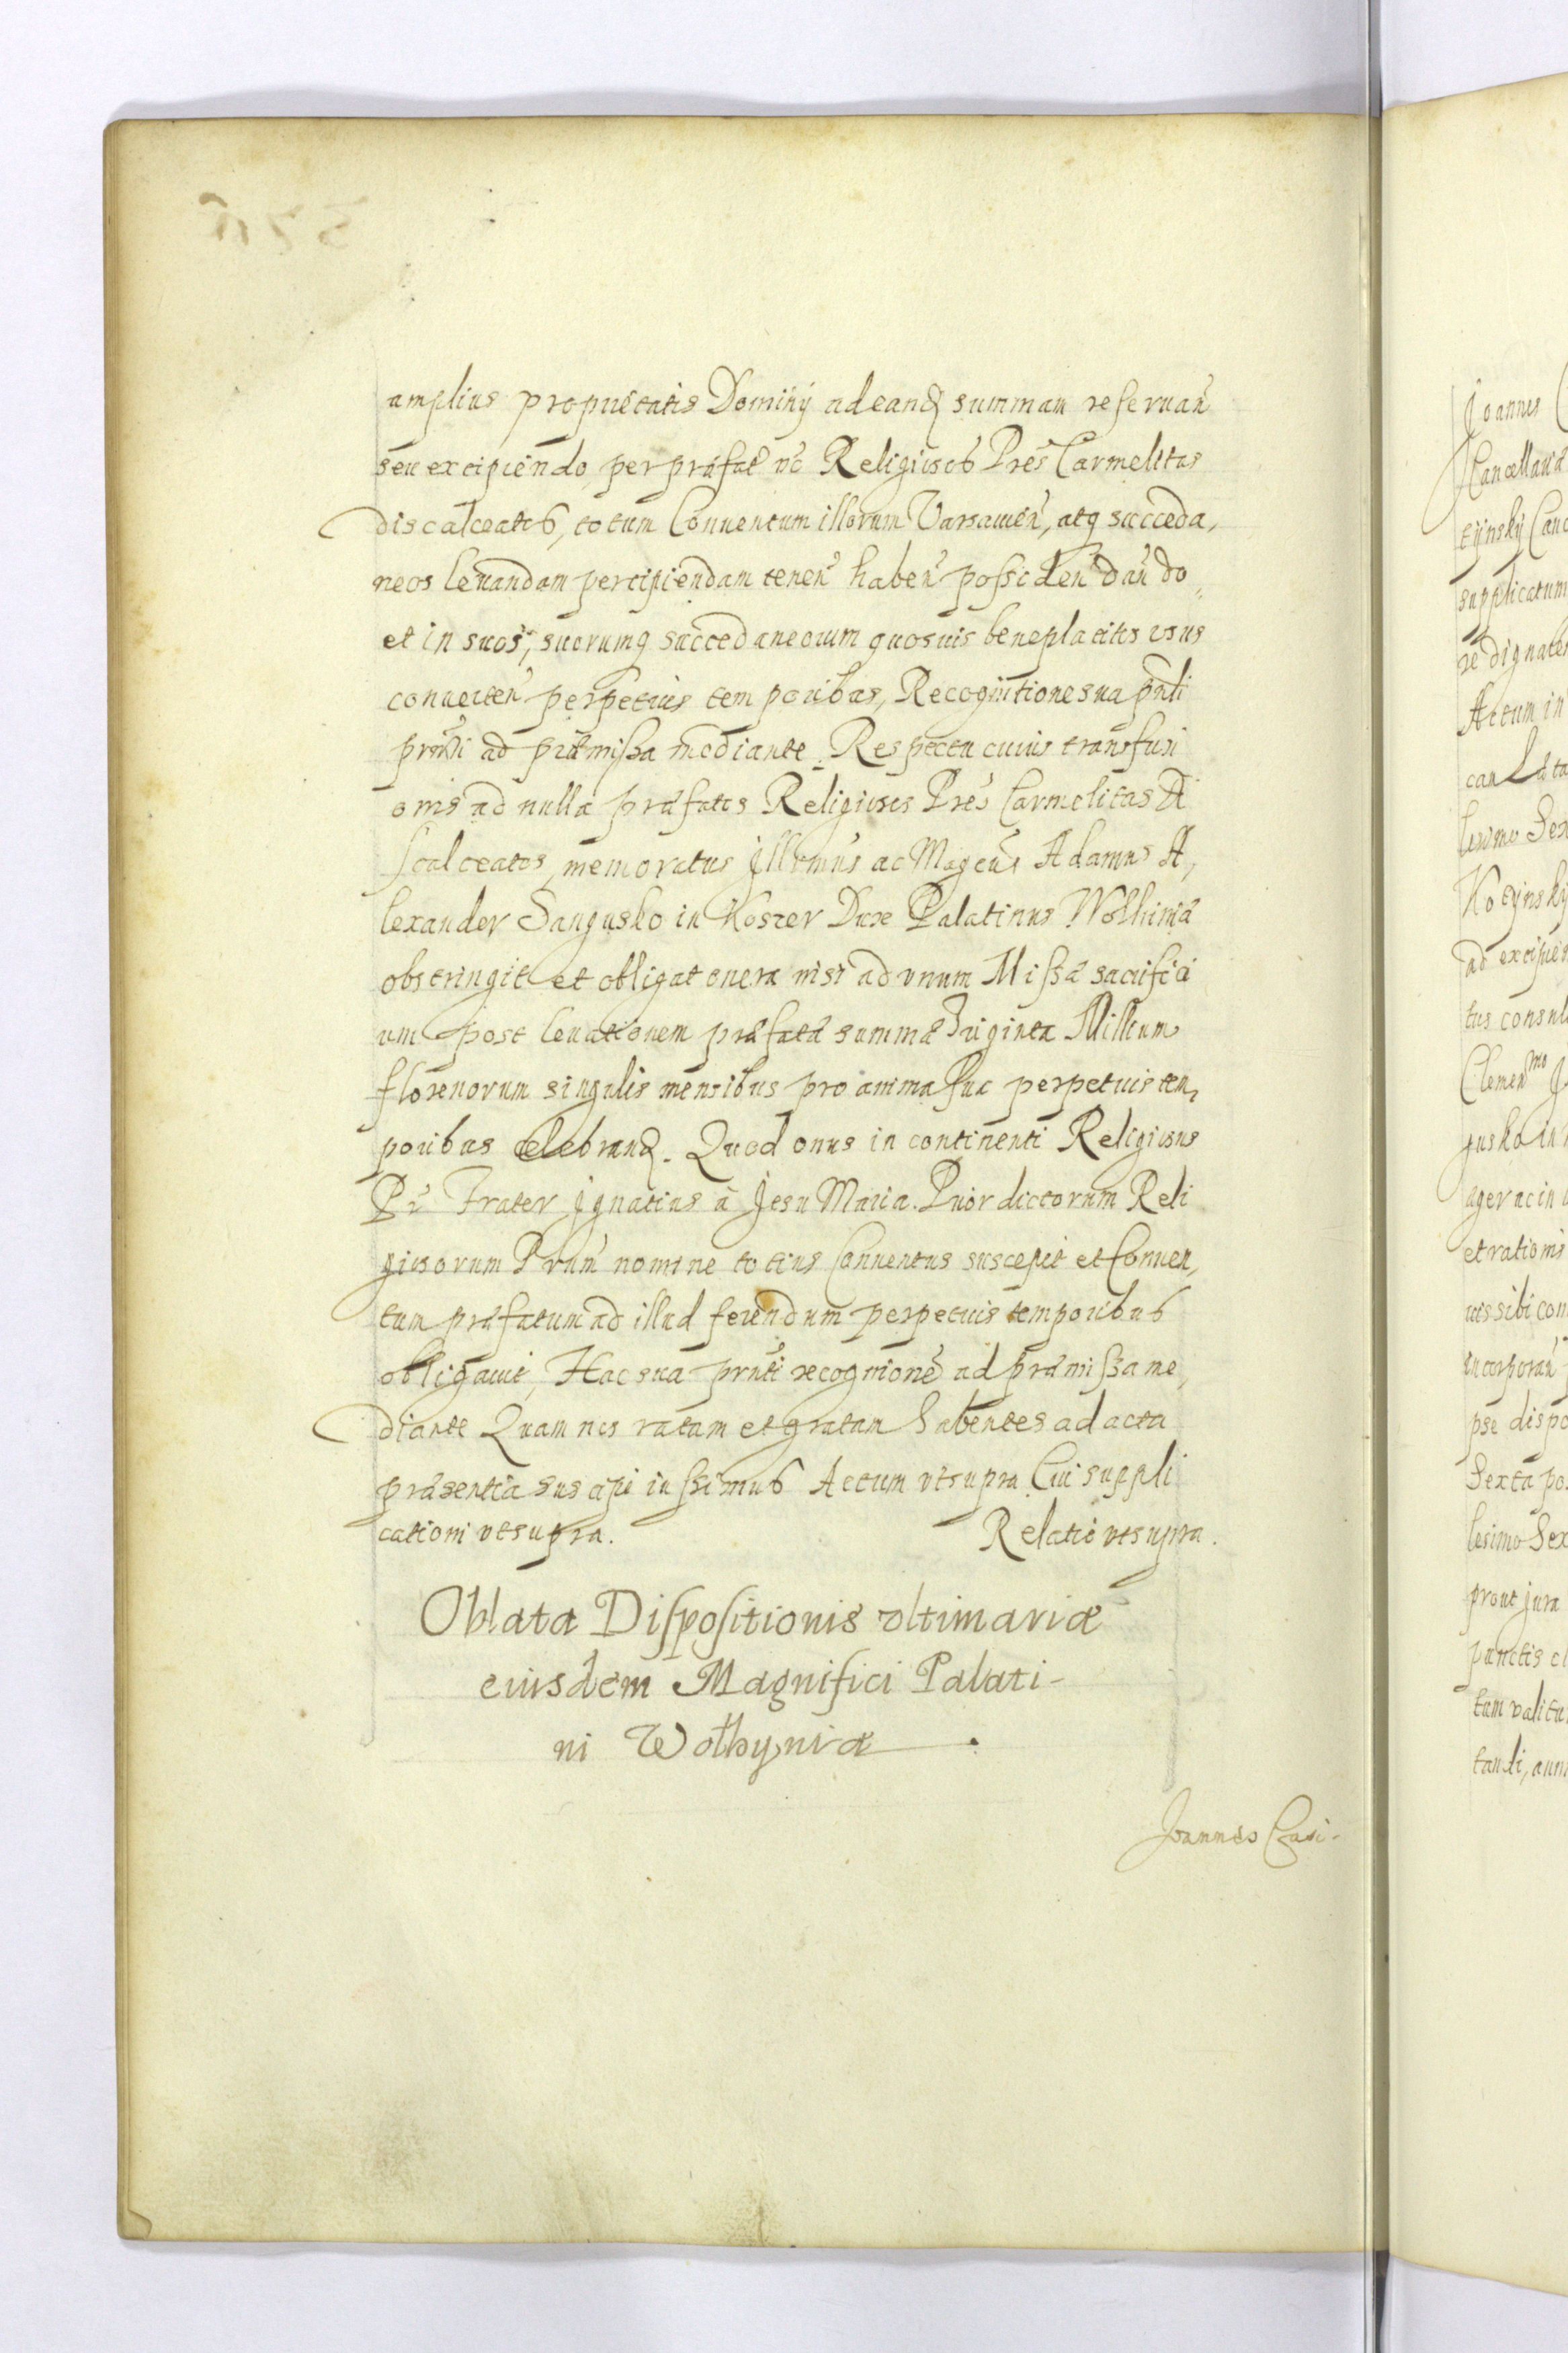 amplius proprietatis Dominij ad eand summam reseruan
seu excipiendo, per præfat vo Religiosos Pres Carmelitas
discalceatos, totum Conuentum illorum Varsauien, atq succeda,
neos leuandam percipiendam tenen haben possiden dan do,
et in suos, suorumq succedaneorum quosuis beneplacitos vsus
conuerten perpetuis temporibus, Recognitione sua pnti
pnti ad præmissa mediante. Respectu cuius transfusi
onis ad nulla præfatos Religiosos Pres Carmelitas di
scalceatos, memoratus Jllmus ac Magcus Adamus A,
lexander Sangusko in Koszer Dux Palatinus Wolhiniæ
obstringit et obligat onera nisi ad vnum Missæ sacrifici
um post leuationem præfatæ summæ Triginta Millium
florenorum singulis mensibus pro anima sua perpetuis tem,
poribus celebrand. Quod onus in continenti Religiosus
Pr Frater Jgnatius à Jesu Maria. Prior dictorum Reli
giosorum Prum nomine totius Conuentus suscepit et Conuen,
tum præfatum ad illud ferendum perpetuis temporibus
obligauit, Hac sua pnti recognione ad præmissa me,
diante Quam nos ratam et gratam habentes ad acta
præsentia suscipi iussimus Actum vt supra Cui suppli
cationi vt supra. Relatio vt supra.
Oblata Dispositionis vltimariæ
eiusdem Magnifici Palati-
ni Wolhyniæ.
Joannes Casi-
Joannes
Cancellaria
supplicatum
Actum in
ad excipien
et rationi
prout jura
punctis